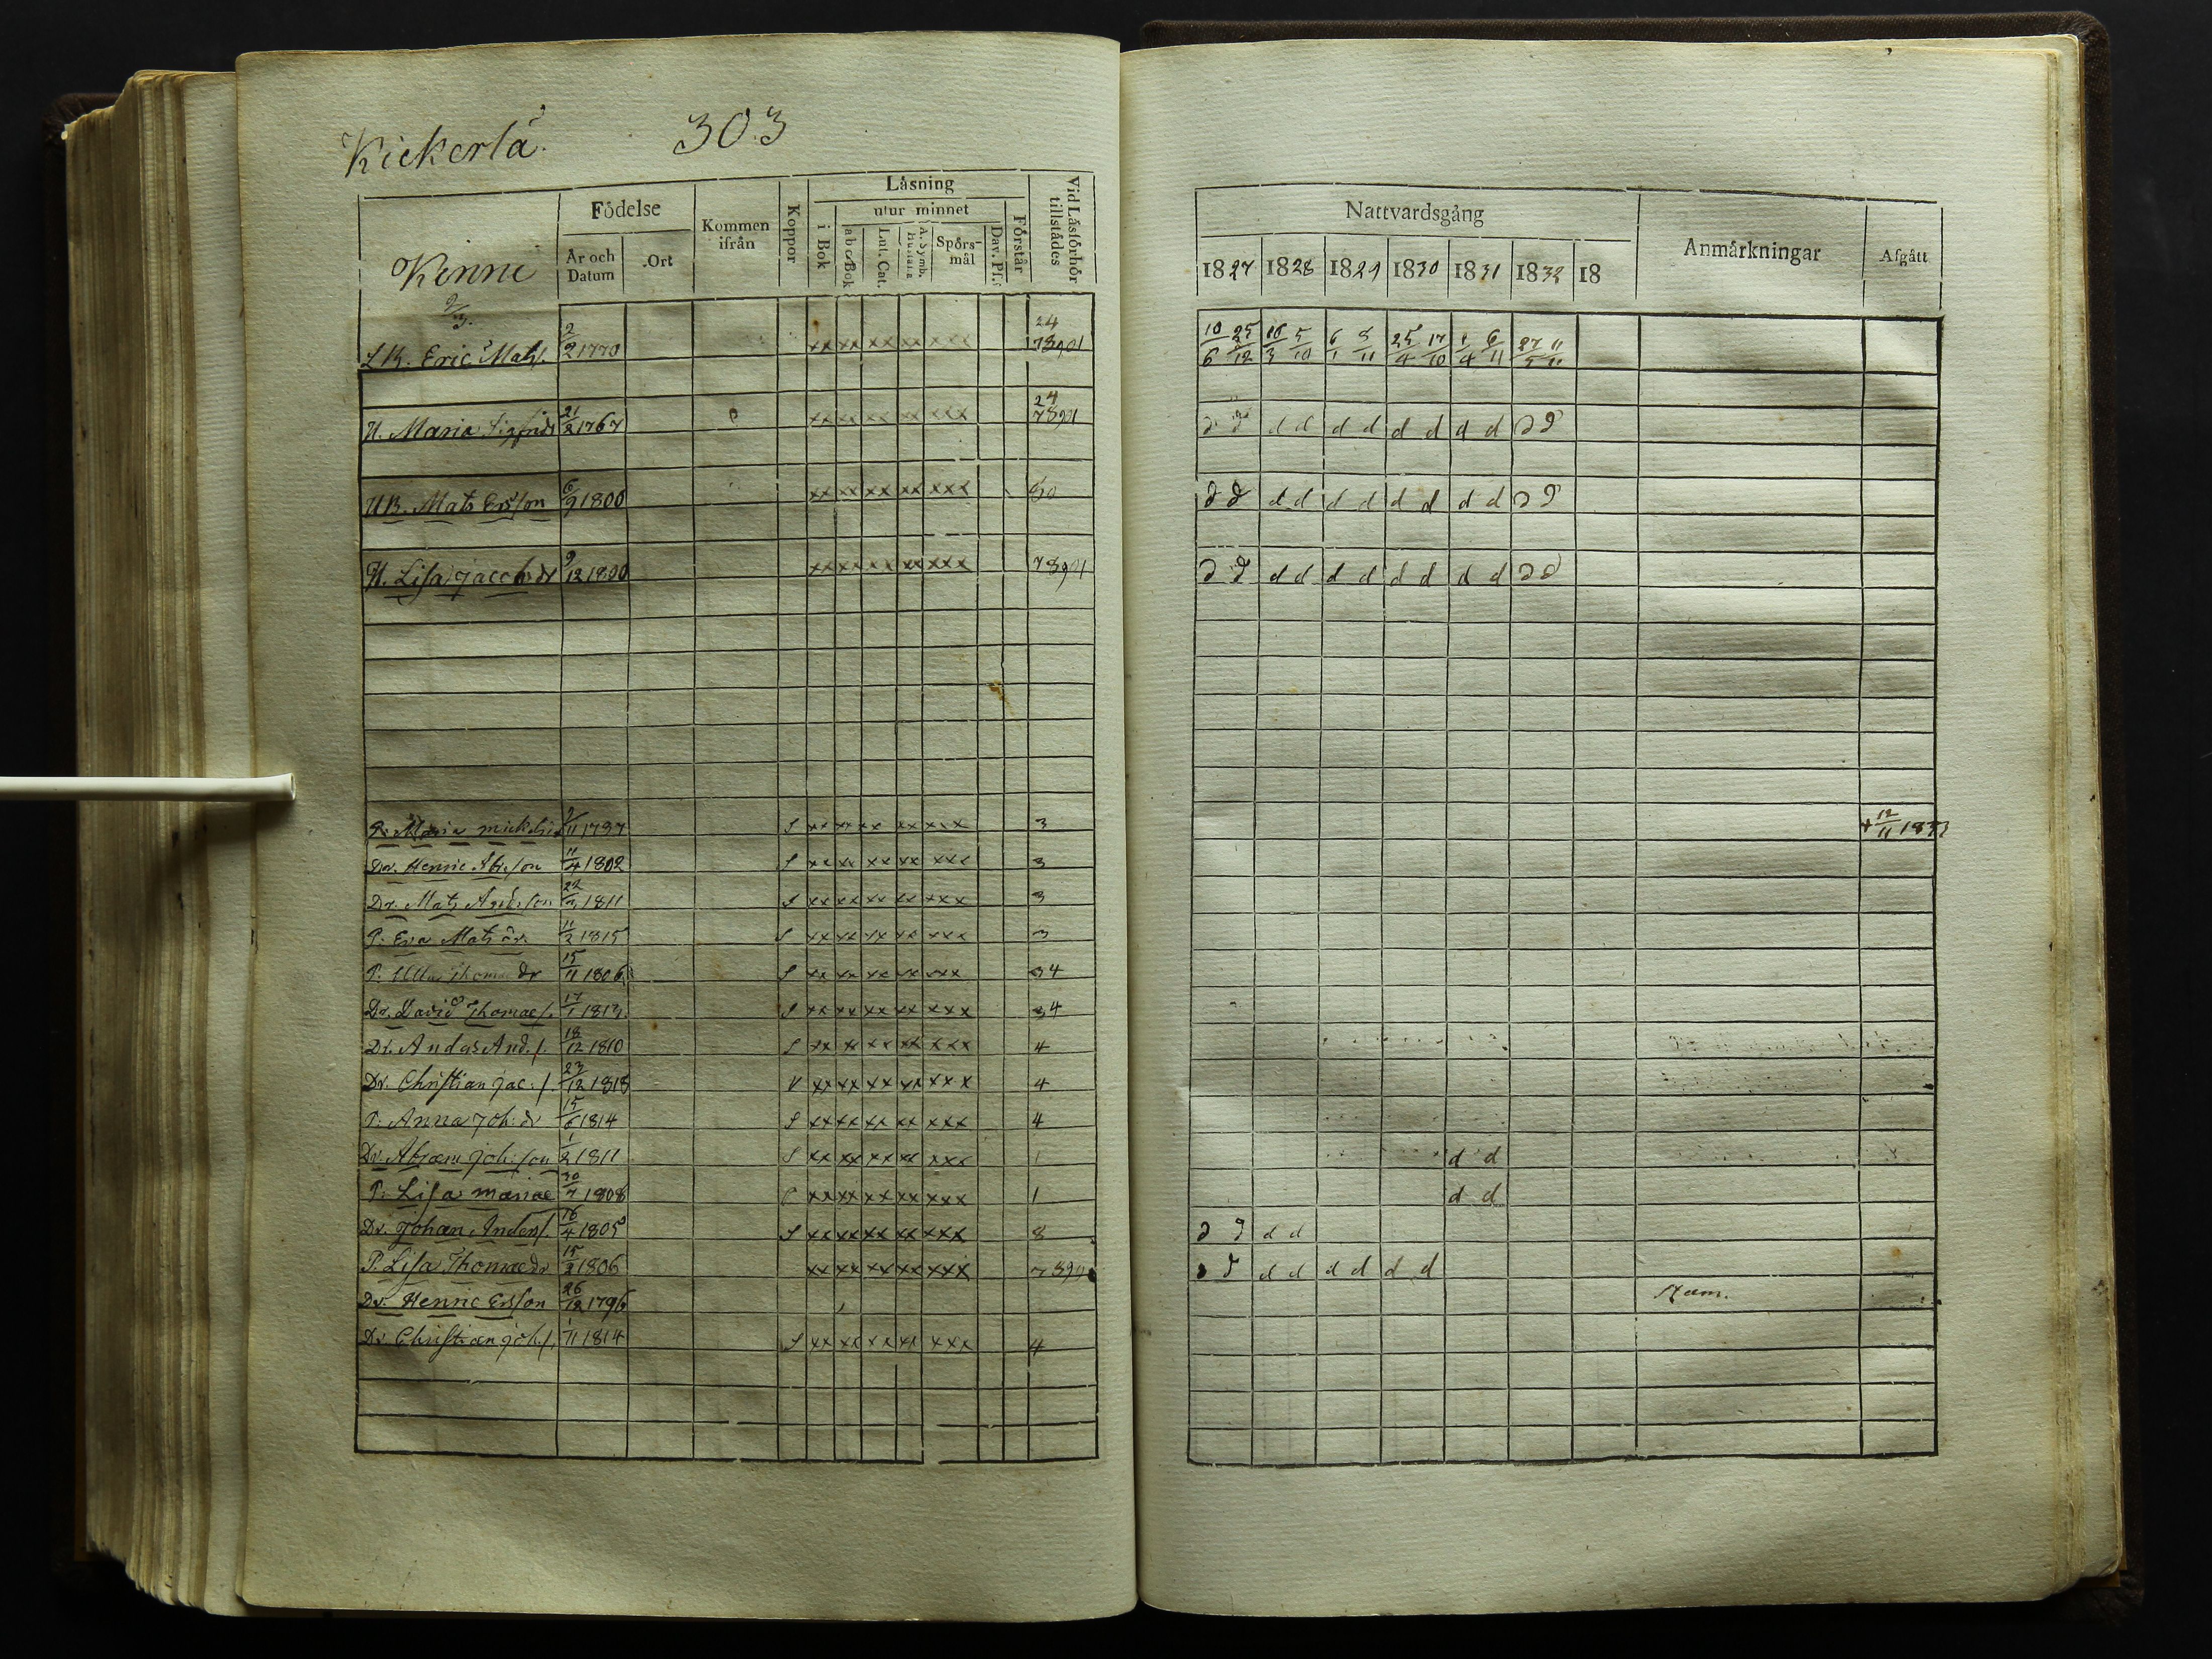 Kickerlä. 303
Födelse
Kommen ifrån
Koppor
Läsning
utur minnet
i Bok
Lut. Cat.
Spörsmål
Dav. Ps.
Förstår
Vid Läsförhör tillstädes
Kenni
År och Datum
Ort
2/3.
L.B. Eric Mats. 2/2 1770 xx xx xx xx xxx 24 78901
H. Maria Sigfridsdr 21/2 1767 xx xx xx xx xxx 24 78901
UB. Mats Ersson 6/9 1800 xx xx xx xx xxx 80
H. Lisa Jacobsdr 9/12 1800 xx xx xx xx xxx 78901
P. Maria Mickelsd 11 1797 S xx xx xx xx xxx 3
Dr. Henric Abr.son 11/4 1802 S xx xx xx xx xxx 3
Dr. Mats Anders.son 22 1811 S xx xx xx xx xxx 3
P. Eva Mats dr. 11/2 1815 S xx xx xx xx xxx 3
P. Ulla Thomas dr 15/11 1806 S xx xx xx xx xxx 34
Dr. David Thomae s. 17/1 1813 S xx xx xx xx xxx 34
Dr. Anders And. s. 18/12 1810 S xx xx xx xx xxx 4
Dr. Christian Jac. s. 23/12 1818 V xx xx xx xx xxx 4
P. Anna Joh. dr 15/6 1814 S xx xx xx xx xxx 4
Dr. Abram Joh. son 1/2 1811 S xx xx xx xx xxx 1
P. Lisa Mariae 30/7 1808 xx xx xx xx xxx 1
Dr. Johan Anders. 16/4 1805 S xx xx xx xx xxx 8
P. Lisa Thomaedr 15/2 1806 xx xx xx xx xxx 7890
Dr. Henric Ersson 26/12 1796
Dr. Christian Joh. s. 1/11 1814 S xx xx xx xx xxx 4
Nattvardsgång
Anmärkningar
Afgått
1827 1828 1829 1830 1831 1832 18
10/6 25/12 16/3 5/10 6/1 5/11 25/4 17/10 1/4 6/11 27/5 11/11
d d d d d d d d d d d d
d d d d d d d d d d d d
d d d d d d d d d d d d
+ 12/11 1833
d d
d d
d d d d
d d d d d d d d